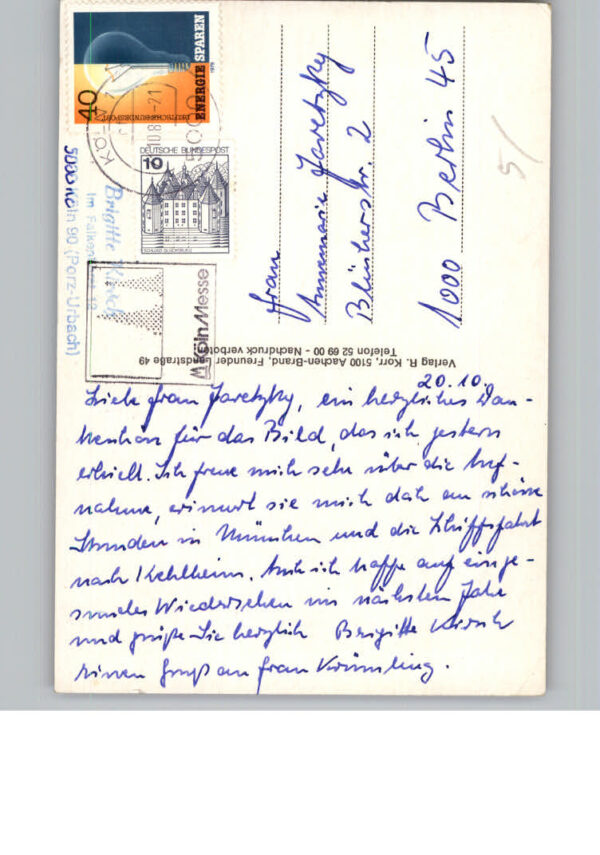 20.10.
Liebe Frau Jaretzky, ein herzliches Dan-
keschön für das Bild, das ich gestern
erhielt. Ich freue mich sehr über die Auf-
nahme, erinnert sie mich doch an schöne
Stunden in München und die Schiffsfahrt
nach Kehlheim. Auch ich hoffe auf ein ge-
sundes Wiedersehen im nächsten Jahr
und grüße Sie herzlich Brigitte Kirsch
Einen Gruß an Frau Krümling.
Frau
Annemarie Jaretzky
Blücherstr. 2
1000 Berlin 45
Verlag R. Korr, 5100 Aachen-Brand, Freunder Landstraße 49
Telefon 52 69 00 - Nachdruck verboten
40
DEUTSCHE BUNDESPOST
ENERGIE SPAREN
1979
DEUTSCHE BUNDESPOST
10
SCHLOSS GLÜCKSBURG
KÖLN
5000
KölnMesse
Brigitte Kirsch
Im
Köln 90 (Porz-Urbach)